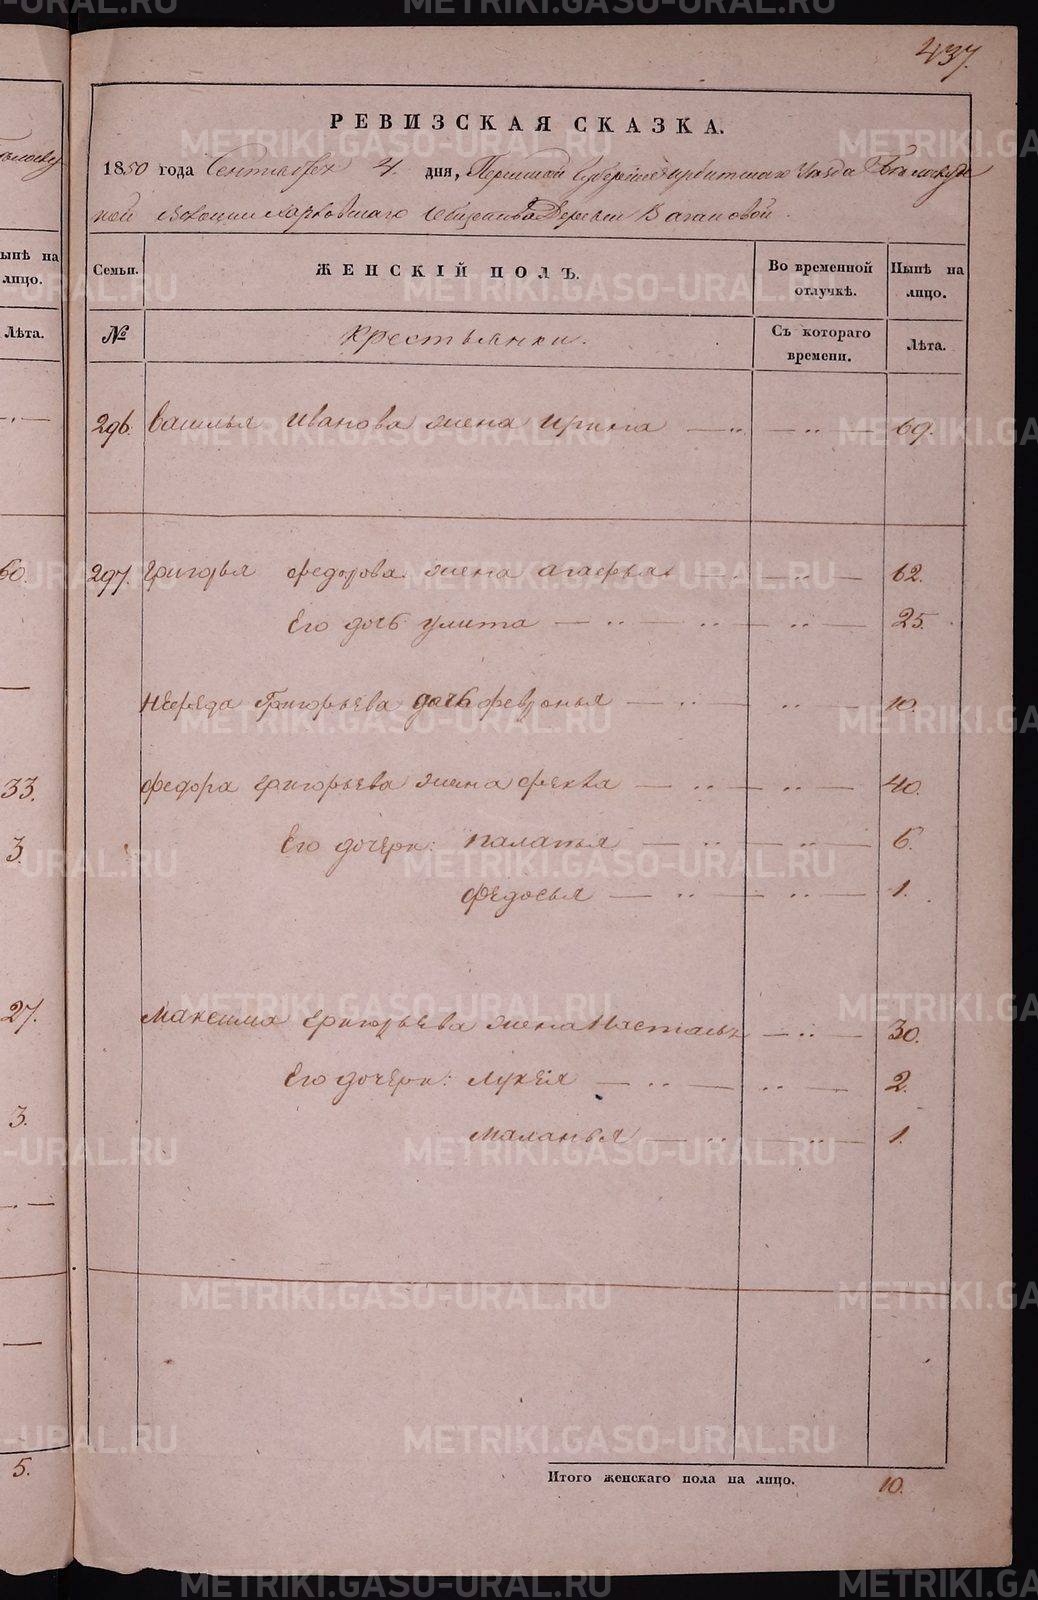 437.
РЕВИЗСКАЯ СКАЗКА.
1850 года Сентября 4 дня, Пермской Губернии Ирбитскаго Уезда Белослуд
ской волости Харловскаго Общества Деревни Вагановой.
Семьи.
ЖЕНСКІЙ ПОЛЪ.
Во временной отлучкѣ.
Нынѣ на лицо.
№
Крестьянки.
Съ котораго времени.
Лѣта.
296. Василья Иванова жена Ирина — „ — „ — 69.
297. Григорья Федорова жена Агафья — „ — „ — 62.
Его дочь Улита — „ — „ — „ — 25.
Нефеда Григорьева дочь Февронья — „ — „ — 10.
Федора Григорьева жена Фекла — „ — „ — 40.
Его дочери: Палатья — „ — „ — 6.
Федосья — „ — „ — 1.
Максима Григорьева жена Настасья — „ — 30.
Его дочери: Лукея — „ — „ — 2.
Маланья — „ — „ — 1.
Итого женскаго пола на лицо. 10.
ынѣ на
лицо.
Лѣта.
60.
33.
3.
27.
3.
5.
METRIKI.GASO-URAL.RU